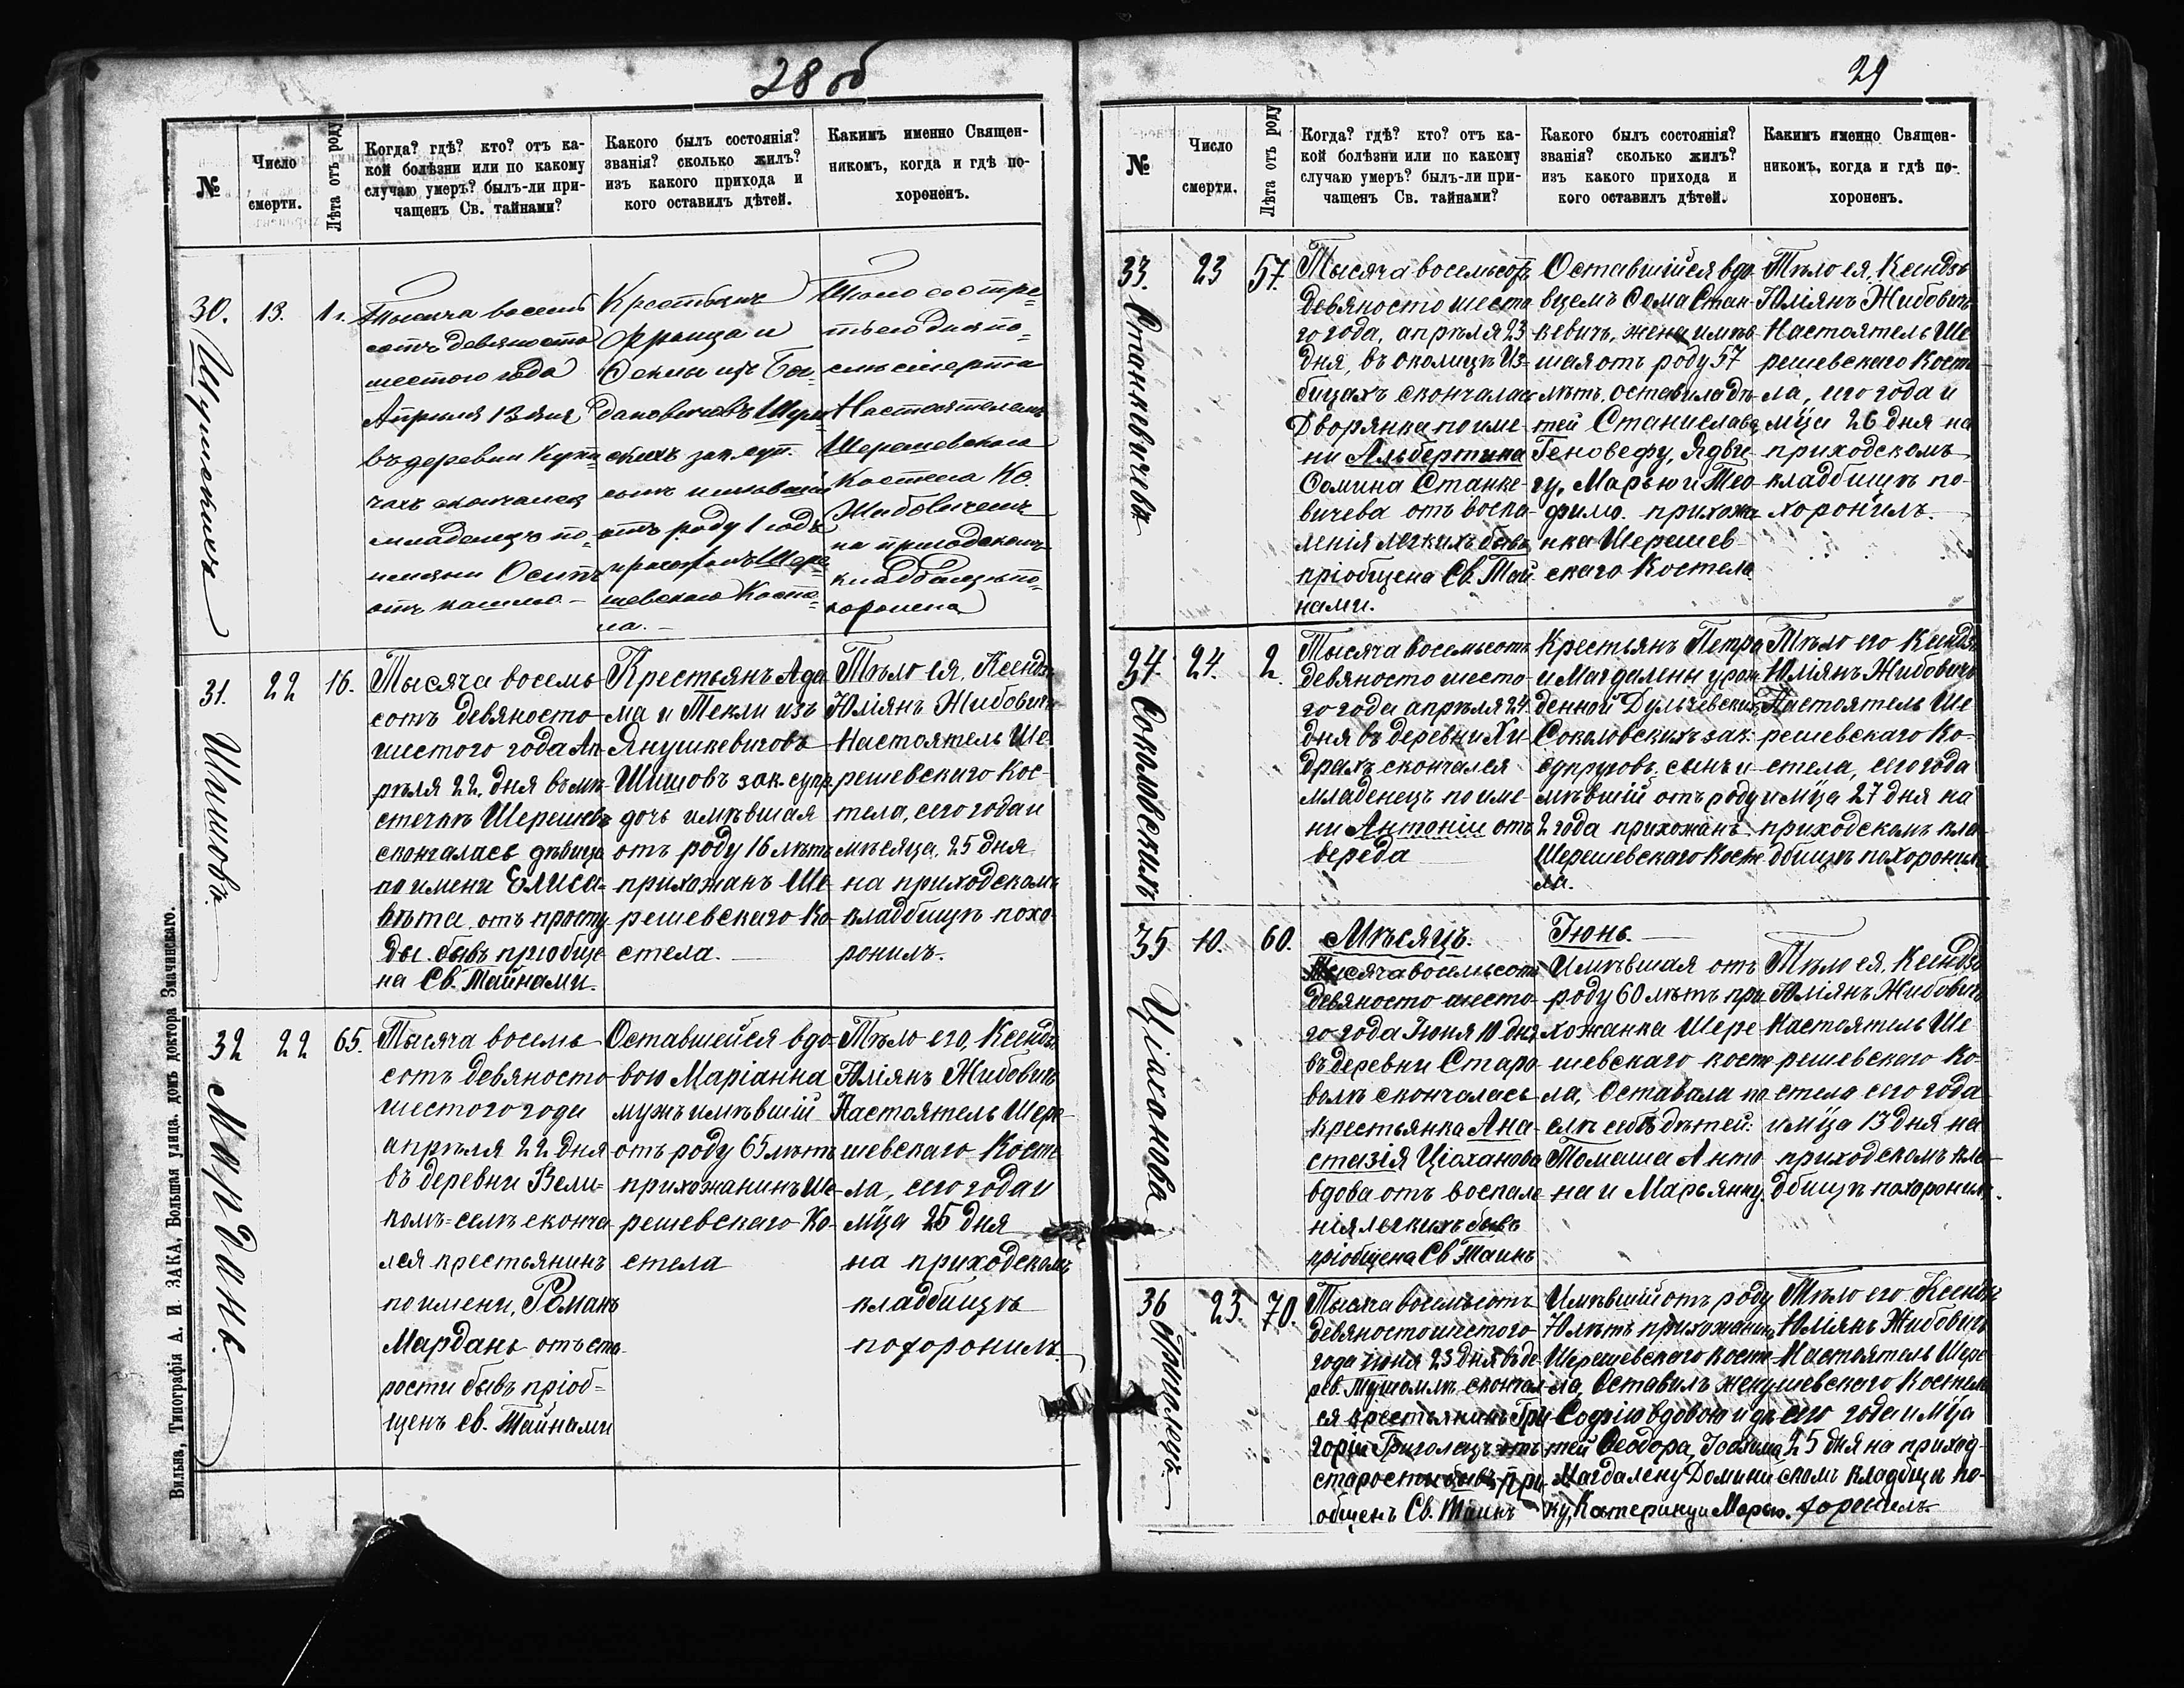 28 об
№
Число
смерти.
Лѣта отъ роду
Когда? гдѣ? кто? отъ ка-
кой болѣзни или по какому
случаю умеръ? былъ-ли при-
чащенъ Св. тайнами?
Какого былъ состоянія?
званія? сколько жилъ?
изъ какого прихода и
кого оставилъ дѣтей.
Какимъ именно Священ-
никомъ, когда и гдѣ по-
хороненъ.
30.
13.
1 г.
Тысяча восемь
сотъ девяносто
шестого года
Апрѣля 13 дня
въ деревни
чахъ скончался
младенецъ по
имени Осипъ
отъ кашлю.
Крестьянъ
Франца и
изъ Бог
дановичовъ
скихъ зак. суп.
сынъ имѣвшій
отъ роду 1 годъ
прихожанъ Шере
шевскаго Косте
ла.
Тѣло его тре
тьего дня по
слѣ смерти
Настоятелемъ
Шерешевскаго
Костела Кс.
Жибовичемъ
на приходскомъ
кладбищѣ по
хоронено
31.
Шишова
22
16.
Тысяча восемь
сотъ девяносто
шестого года Ап
рѣля 22. дня въ мѣ
стечкѣ Шерешевѣ
скончалась дѣвица
по имени Елиса-
вѣта отъ просту
ды бывъ пріобще
на Св. Тайнами.
Крестьянъ Ада
ма и Текли изъ
Янушкевичовъ
Шишовъ зак. супр.
дочь имѣвшая
отъ роду 16 лѣтъ
прихожанъ Ше-
решевскаго Ко
стела.
Тѣло ея, Ксендзъ
Юліянъ Жибовичъ
Настоятель Ше
решевскаго Кос-
тела, сего года и
мѣсяца, 25 дня
на приходскомъ
кладбищѣ похо
ронилъ.
32
Марданъ.
22
65.
Тысяча восемь
сотъ девяносто
шестого года
апрѣля 22 дня
въ деревни Вели=
комъ=селѣ сконча
лся крестьянинъ
по имени, Романъ
Марданъ отъ ста
рости бывъ пріоб=
щенъ св. Тайнами
Оставшейся вдо
вою Маріанна
мужъ имѣвшій
отъ роду 65 лѣтъ
прихожанинъ Ше
решевскаго Ко-
стела
Тѣло его, Ксендзъ
Юліянъ Жибовичъ
Настоятель Шере
шевскаго Косте
ла, сего года и
мѣца 25 дня
на приходскомъ
кладбищѣ
похоронилъ.
Вильна, Типографія А. И. ЗАКА, Большая улица. домъ доктора Змачинскаго.
29
№
Число
смерти.
Лѣта отъ роду
Когда? гдѣ? кто? отъ ка-
кой болѣзни или по какому
случаю умеръ? былъ-ли при-
чащенъ Св. тайнами?
Какого былъ состоянія?
званія? сколько жилъ?
изъ какого прихода и
кого оставилъ дѣтей.
Какимъ именно Священ-
никомъ, когда и гдѣ по-
хороненъ.
33.
Станкевичева
23
57.
Тысяча восемьсотъ
девяносто шеста
го года, апрѣля 23
дня, въ околицѣ Из
бицахъ скончалась
Дворянка по име
ни Альбертина
Ѳомина Станке-
вичева отъ воспа
ленія легкихъ бывъ
пріобщена Св. Тай
нами.
Оставшійся вдо
вцемъ Ѳома Стан
кевичъ, жена имѣв
шая отъ роду 57
лѣтъ, оставила дѣ
тей Станислава,
Геновефу, Ядви
гу, Марью и Тео
филю. прихожа
нка Шерешев-
скаго Костела
Тѣло ея, Ксендзъ
Юліянъ Жибовичъ
Настоятель Ше
решевскаго Косте
ла, сего года и
мѣца 26 дня на
приходскомъ
кладбищѣ по-
хоронилъ.
34.
Соколовскихъ
24.
2.
Тысяча восемьсотъ
девяносто шесто
го года апрѣля 24
дня въ деревни Хи
драхъ скончался
младенецъ по име
ни Антоній отъ
вереда
Крестьянъ Петра
и Магдалены урож
денной Дульчевскихъ
Соколовскихъ зак.
супруговъ. сынъ и-
мѣвшій отъ роду
2 года прихожанъ
Шерешевскаго Косте
ла.
Тѣло его Ксендзъ
Юліянъ Жибовичъ
Настоятель Ше
решевскаго Ко-
стела, сего года
и мѣца 27 дня на
приходскомъ кла
дбищѣ похоронилъ
35
Ціаханова
10.
60.
Мѣсяцъ.
Іюнь.
Тысяча восемьсотъ
девяносто шесто-
го года Іюня 10 дня
въ деревни Старо
волѣ скончалась
крестьянка Ана
стазія Ціаханова
вдова отъ воспале
нія легкихъ бывъ
пріобщена Св Таинъ
Имѣвшая отъ
роду 60 лѣтъ при
хожанка Шере
шевскаго косте
ла, Оставила по
слѣ себѣ дѣтей:
Томаша Анто
на и Марьянну,
Тѣло ея, Ксендзъ
Юліянъ Жибовичъ
Настоятель Ше
решевскаго Ко
стела сего года
и мѣца 13 дня на
приходскомъ кла
дбищѣ похоронилъ.
36
23.
70.
Тысяча восемьсотъ
девяносто шестого
года іюня 23 дня въ де
рев. скончал
ся крестьянинъ Гри
горій отъ
старости бывъ прі
общенъ Св. Таинъ
Имѣвшій отъ роду
70 лѣтъ прихожанинъ
Шерешевскаго косте
ла, Оставилъ жену
Софію вдовою и дѣ
тей Ѳеодора, Іоахима,
Магдалену Домини
ку, Катерину и Марью.
Тѣло его Ксендзъ
Юліянъ Жибовичъ
Настоятель Шере
шевскаго Костела
сего года и мѣца
25 дня на приход-
скомъ кладбищѣ по-
хоронилъ.